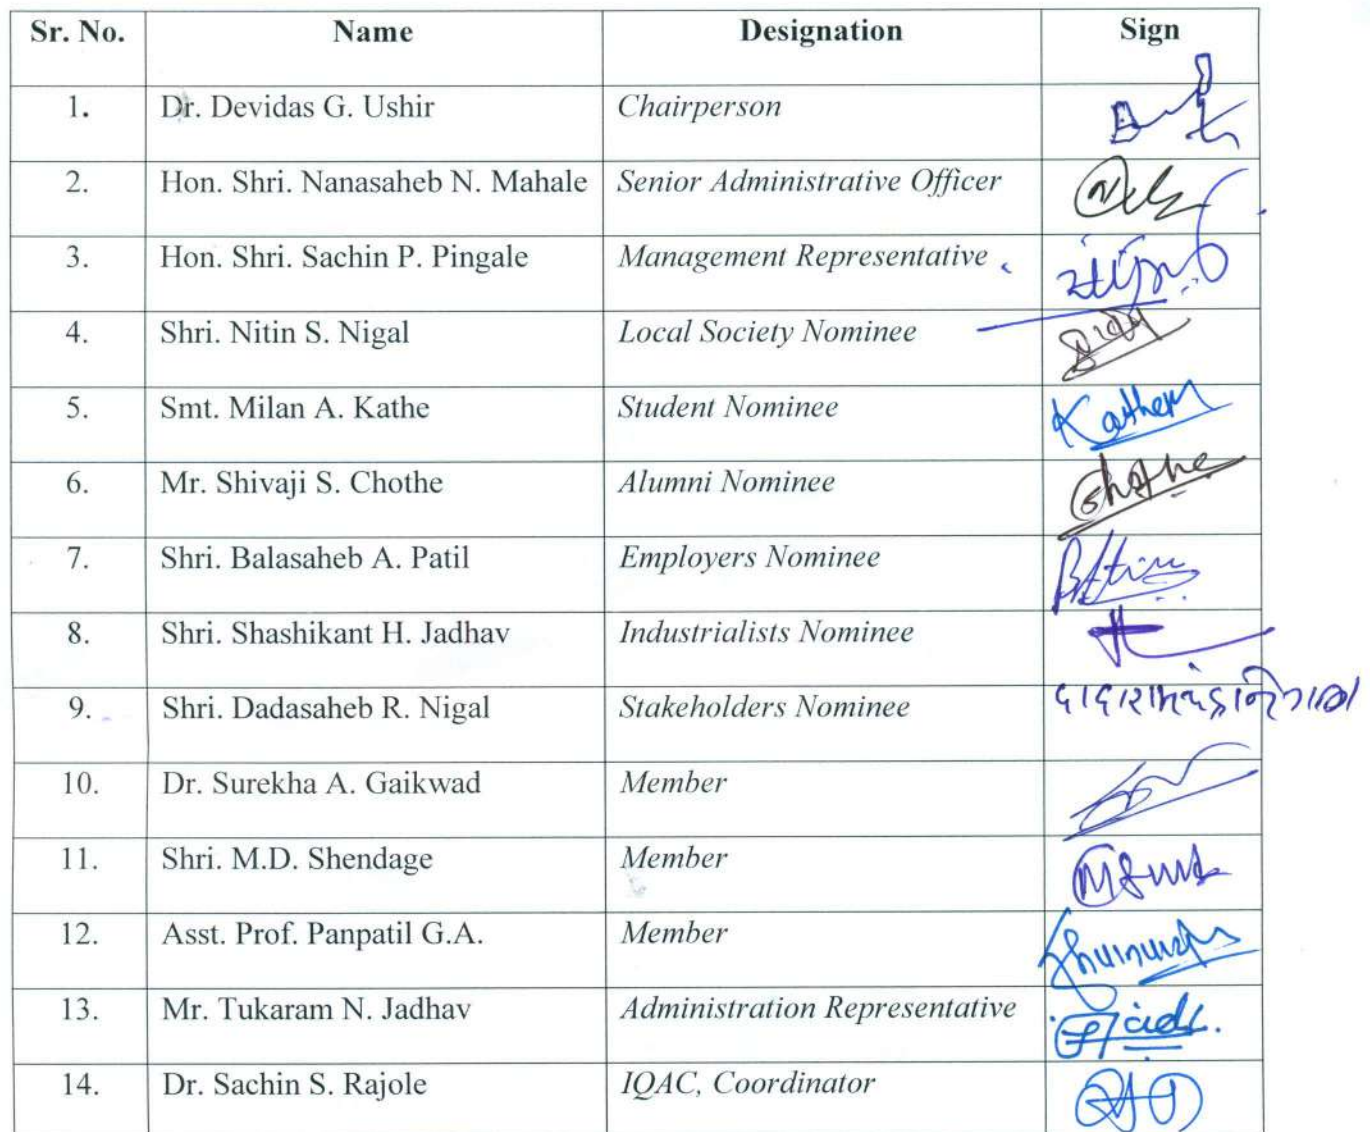 Sr. No. Name Designation Sign
1. Dr. Devidas G. Ushir Chairperson
2. Hon. Shri. Nanasaheb N. Mahale Senior Administrative Officer
3. Hon. Shri. Sachin P. Pingale Management Representative
4. Shri. Nitin S. Nigal Local Society Nominee
5. Smt. Milan A. Kathe Student Nominee Kathem
6. Mr. Shivaji S. Chothe Alumni Nominee Chothe
7. Shri. Balasaheb A. Patil Employers Nominee
8. Shri. Shashikant H. Jadhav Industrialists Nominee
9. Shri. Dadasaheb R. Nigal Stakeholders Nominee
10. Dr. Surekha A. Gaikwad Member
11. Shri. M.D. Shendage Member
12. Asst. Prof. Panpatil G.A. Member
13. Mr. Tukaram N. Jadhav Administration Representative
14. Dr. Sachin S. Rajole IQAC, Coordinator